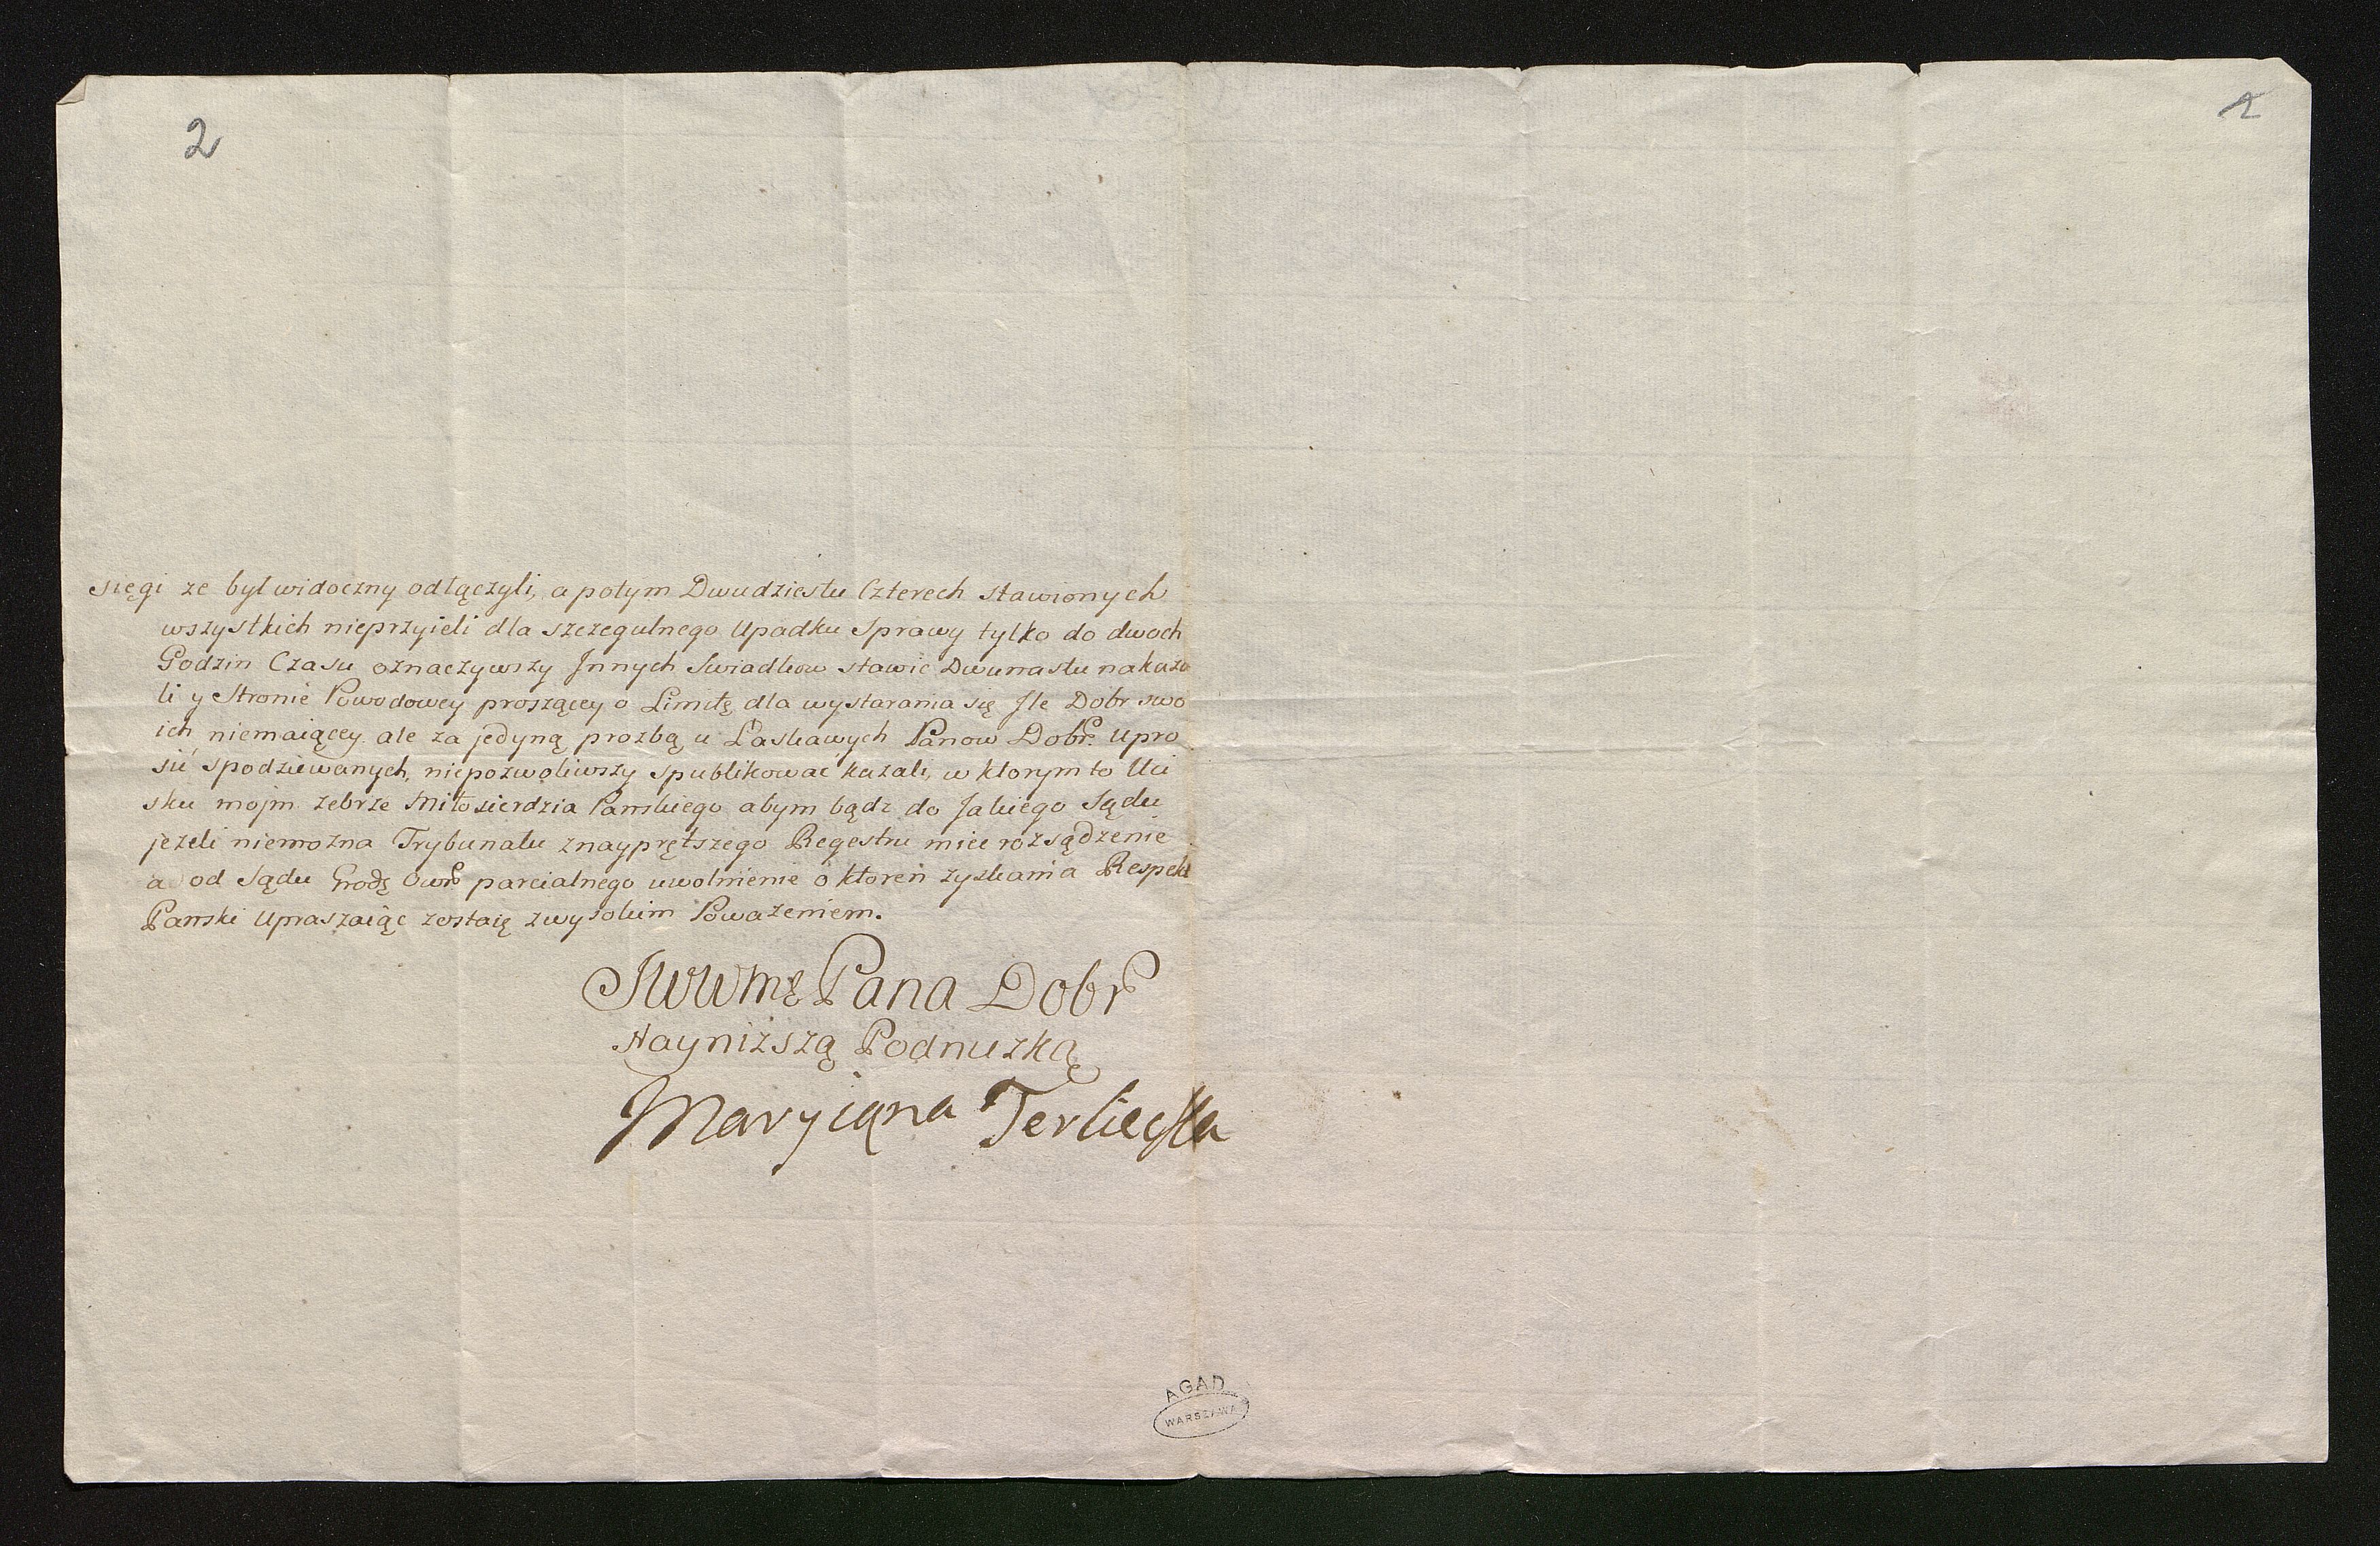 2
2
sięgi ze był widoczny odłączyli, a potym Dwudziestu Czterech stawionych
wszystkich nieprzyieli dla szczegulnego Upadku Sprawy tylko do dwoch
Godzin Czasu oznaczywszy Innych Swiadkow stawic Dwunastu nakaza
li y Stronie Powodowey proszącey o Limitę dla wystarania się Ile Dobr swo
ich niemaiącey ale za jedyną prozbą u Łaskawych Panow Dobr. upro
sić spodziewanych, niepozwoliwszy spublikowac kazali, w ktorym to Uci
sku mojm zebrze Miłosierdzia Panskiego abym bądz do Jakiego Sądu
jezeli niemozna Trybunalu znayprętszego Regestru miec rozsądzenie
a od Sądu Grodz Owr parcialnego uwolnienie o ktoren zyskania Respekt
Panski Upraszaiąc zostaię zwysokim Powazeniem.
JWWMę Pana Dobr
Nayniższą Podnuzką
Maryiąna Terliecka
AGAD
WARSZAWA